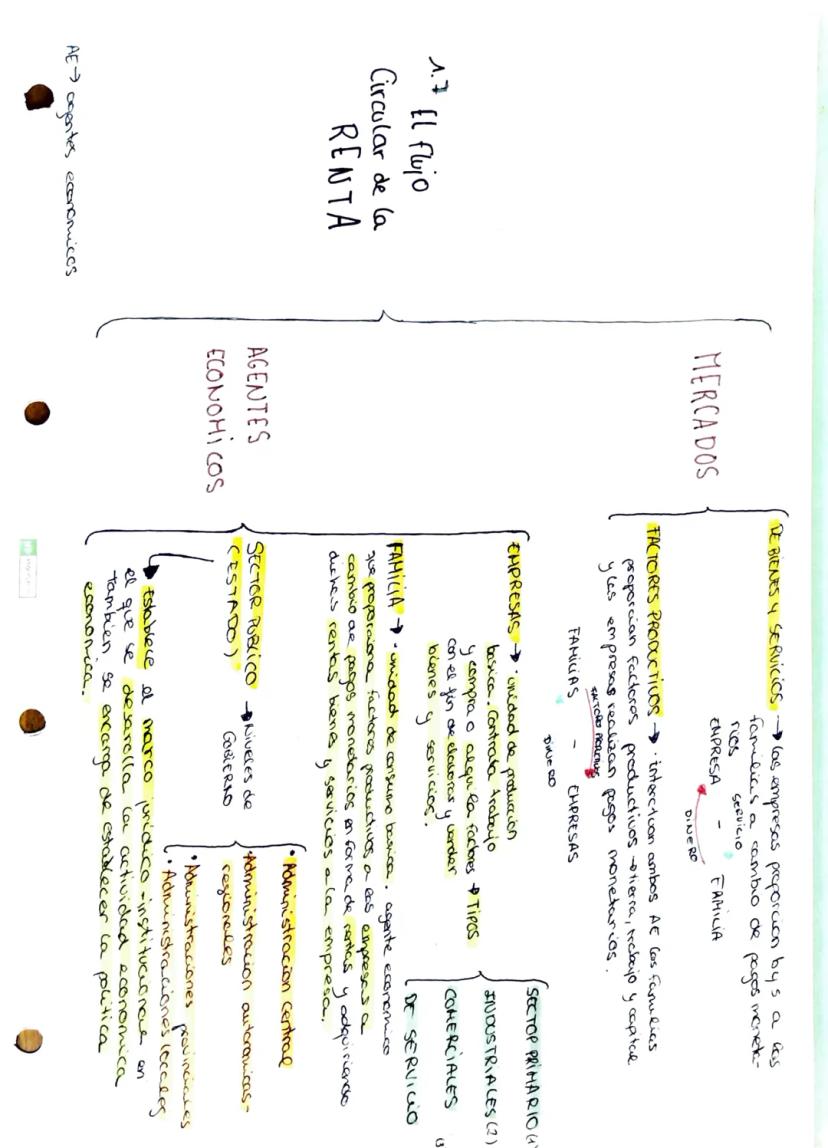 1.7 El flujo
Circular de la
RENTA
MERCADOS
DE BIENES Y SERVICIOS → las empresas proporcion b y s a las
familias a cambio de pagos moneta-
rios
SERVICIO
EMPRESA - FAMILIA
DINERO
FACTORES PRODUCTIVOS → · interactuan ambos AE las familias
proporcian factores productivos → tierra, trabajo y capital
y las empresas realizan pagos monetarios.
FACTORES PRODUCTIVOS
FAMILIAS - EMPRESAS
DINERO
AGENTES
ECONOMICOS
EMPRESAS → · unidad de produccion
basica. Contrata trabajo
y compra o alquila factores → TIPOS
con el fin de elaborar y vender
bienes y servicios.
SECTOR PRIMARIO (1)
INDUSTRIALES (2)
COMERCIALES
DE SERVICIO
FAMILIA → · unidad de consumo basica. agente economico
que proporciona factores productivos a las empresas a
cambio de pagos monetarios en forma de rentas y adquiriendo
dichas rentas bienes y servicios a la empresa.
SECTOR PUBLICO → NIVELES DE
(ESTADO) GOBIERNO
· Administracion central
· Administracion autonomicas-
regionales
· Administraciones provinciales
· Administraciones locales
Establece el marco juridico-institucional en
el que se desarolla la actividad economica
tambien se encarga de establecer la politica
economica.
AE → agentes economicos